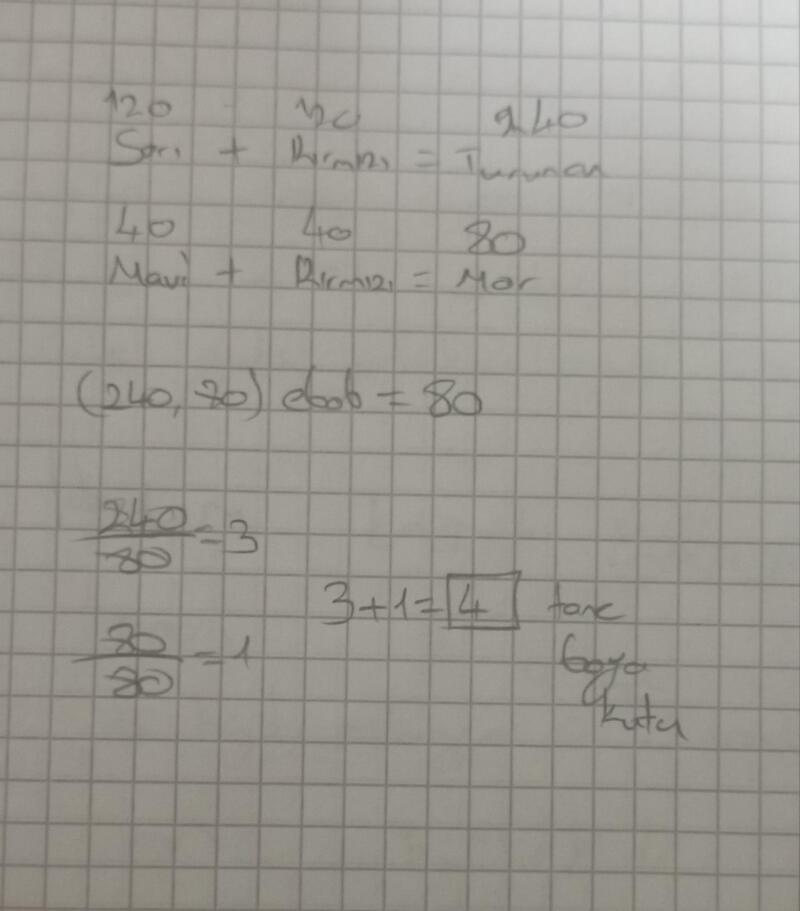 120 240
Sarı + Kırmızı = Turuncu
40 40 80
Mavi + Kırmızı = Mor
(240, 80) ebob = 80
240/80 = 3
3+1= 4 tane
80/80 = 1
boya
kutu